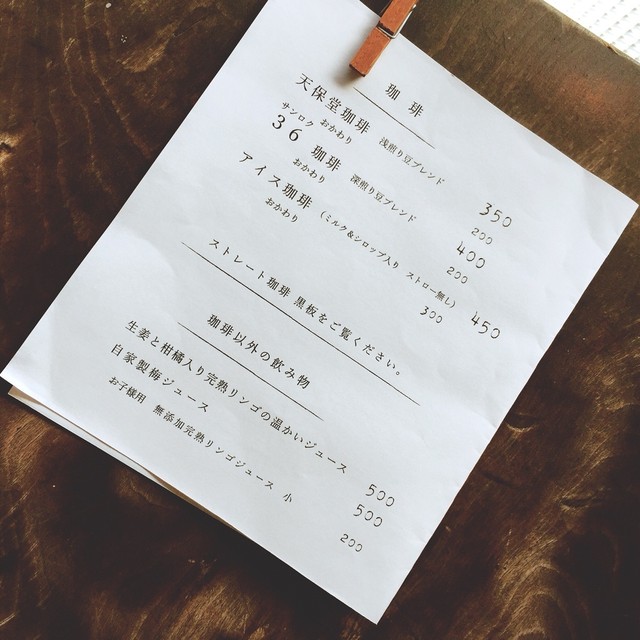 珈琲
天保堂珈琲 浅煎り豆ブレンド 350
おかわり 200
サンロク
36 珈琲 深煎り豆ブレンド 400
おかわり 200
アイス珈琲 (ミルク&シロップ入り ストロー無し) 450
おかわり 300
ストレート珈琲 黒板をご覧ください。
珈琲以外の飲み物
生姜と柑橘入り完熟リンゴの温かいジュース 500
自家製梅ジュース 500
お子様用 無添加完熟リンゴジュース 小 200